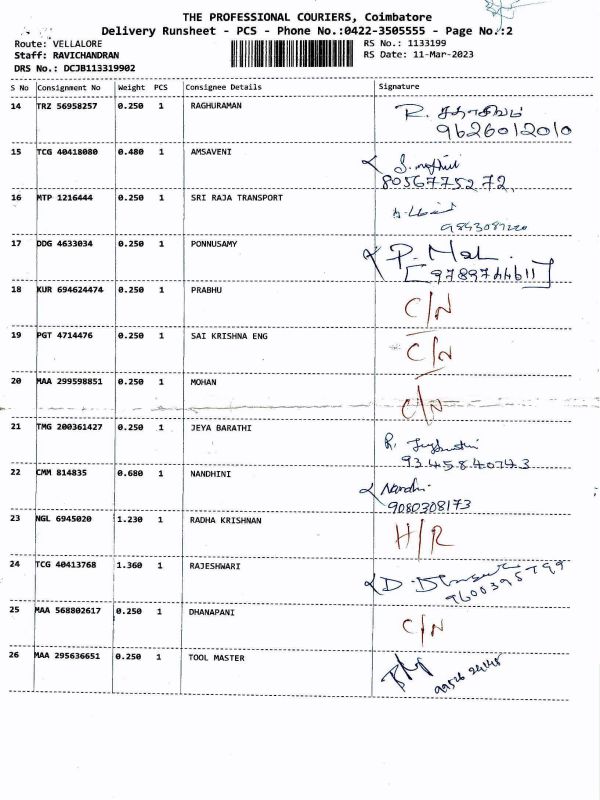 THE PROFESSIONAL COURIERS, Coimbatore
Delivery Runsheet - PCS - Phone No.:0422-3505555 - Page No.:2
Route: VELLALORE
RS No.: 1133199
Staff: RAVICHANDRAN
RS Date: 11-Mar-2023
DRS No.: DCJB113319902
S No Consignment No Weight PCS Consignee Details Signature
14 TRZ 56958257 0.250 1 RAGHURAMAN R. சதாசிவம்
9626012010
15 TCG 40418080 0.480 1 AMSAVENI
8056775272
16 MTP 1216444 0.250 1 SRI RAJA TRANSPORT
17 DDG 4633034 0.250 1 PONNUSAMY P.
[9789744611]
18 KUR 694624474 0.250 1 PRABHU C/N
19 PGT 4714476 0.250 1 SAI KRISHNA ENG C/N
20 MAA 299598851 0.250 1 MOHAN C/N
21 TMG 200361427 0.250 1 JEYA BARATHI
9345840743
22 CMM 814835 0.680 1 NANDHINI Nandhi
9080308173
23 NGL 6945020 1.230 1 RADHA KRISHNAN H/R
24 TCG 40413768 1.360 1 RAJESHWARI D.
9600395799
25 MAA 568802617 0.250 1 DHANAPANI C/N
26 MAA 295636651 0.250 1 TOOL MASTER